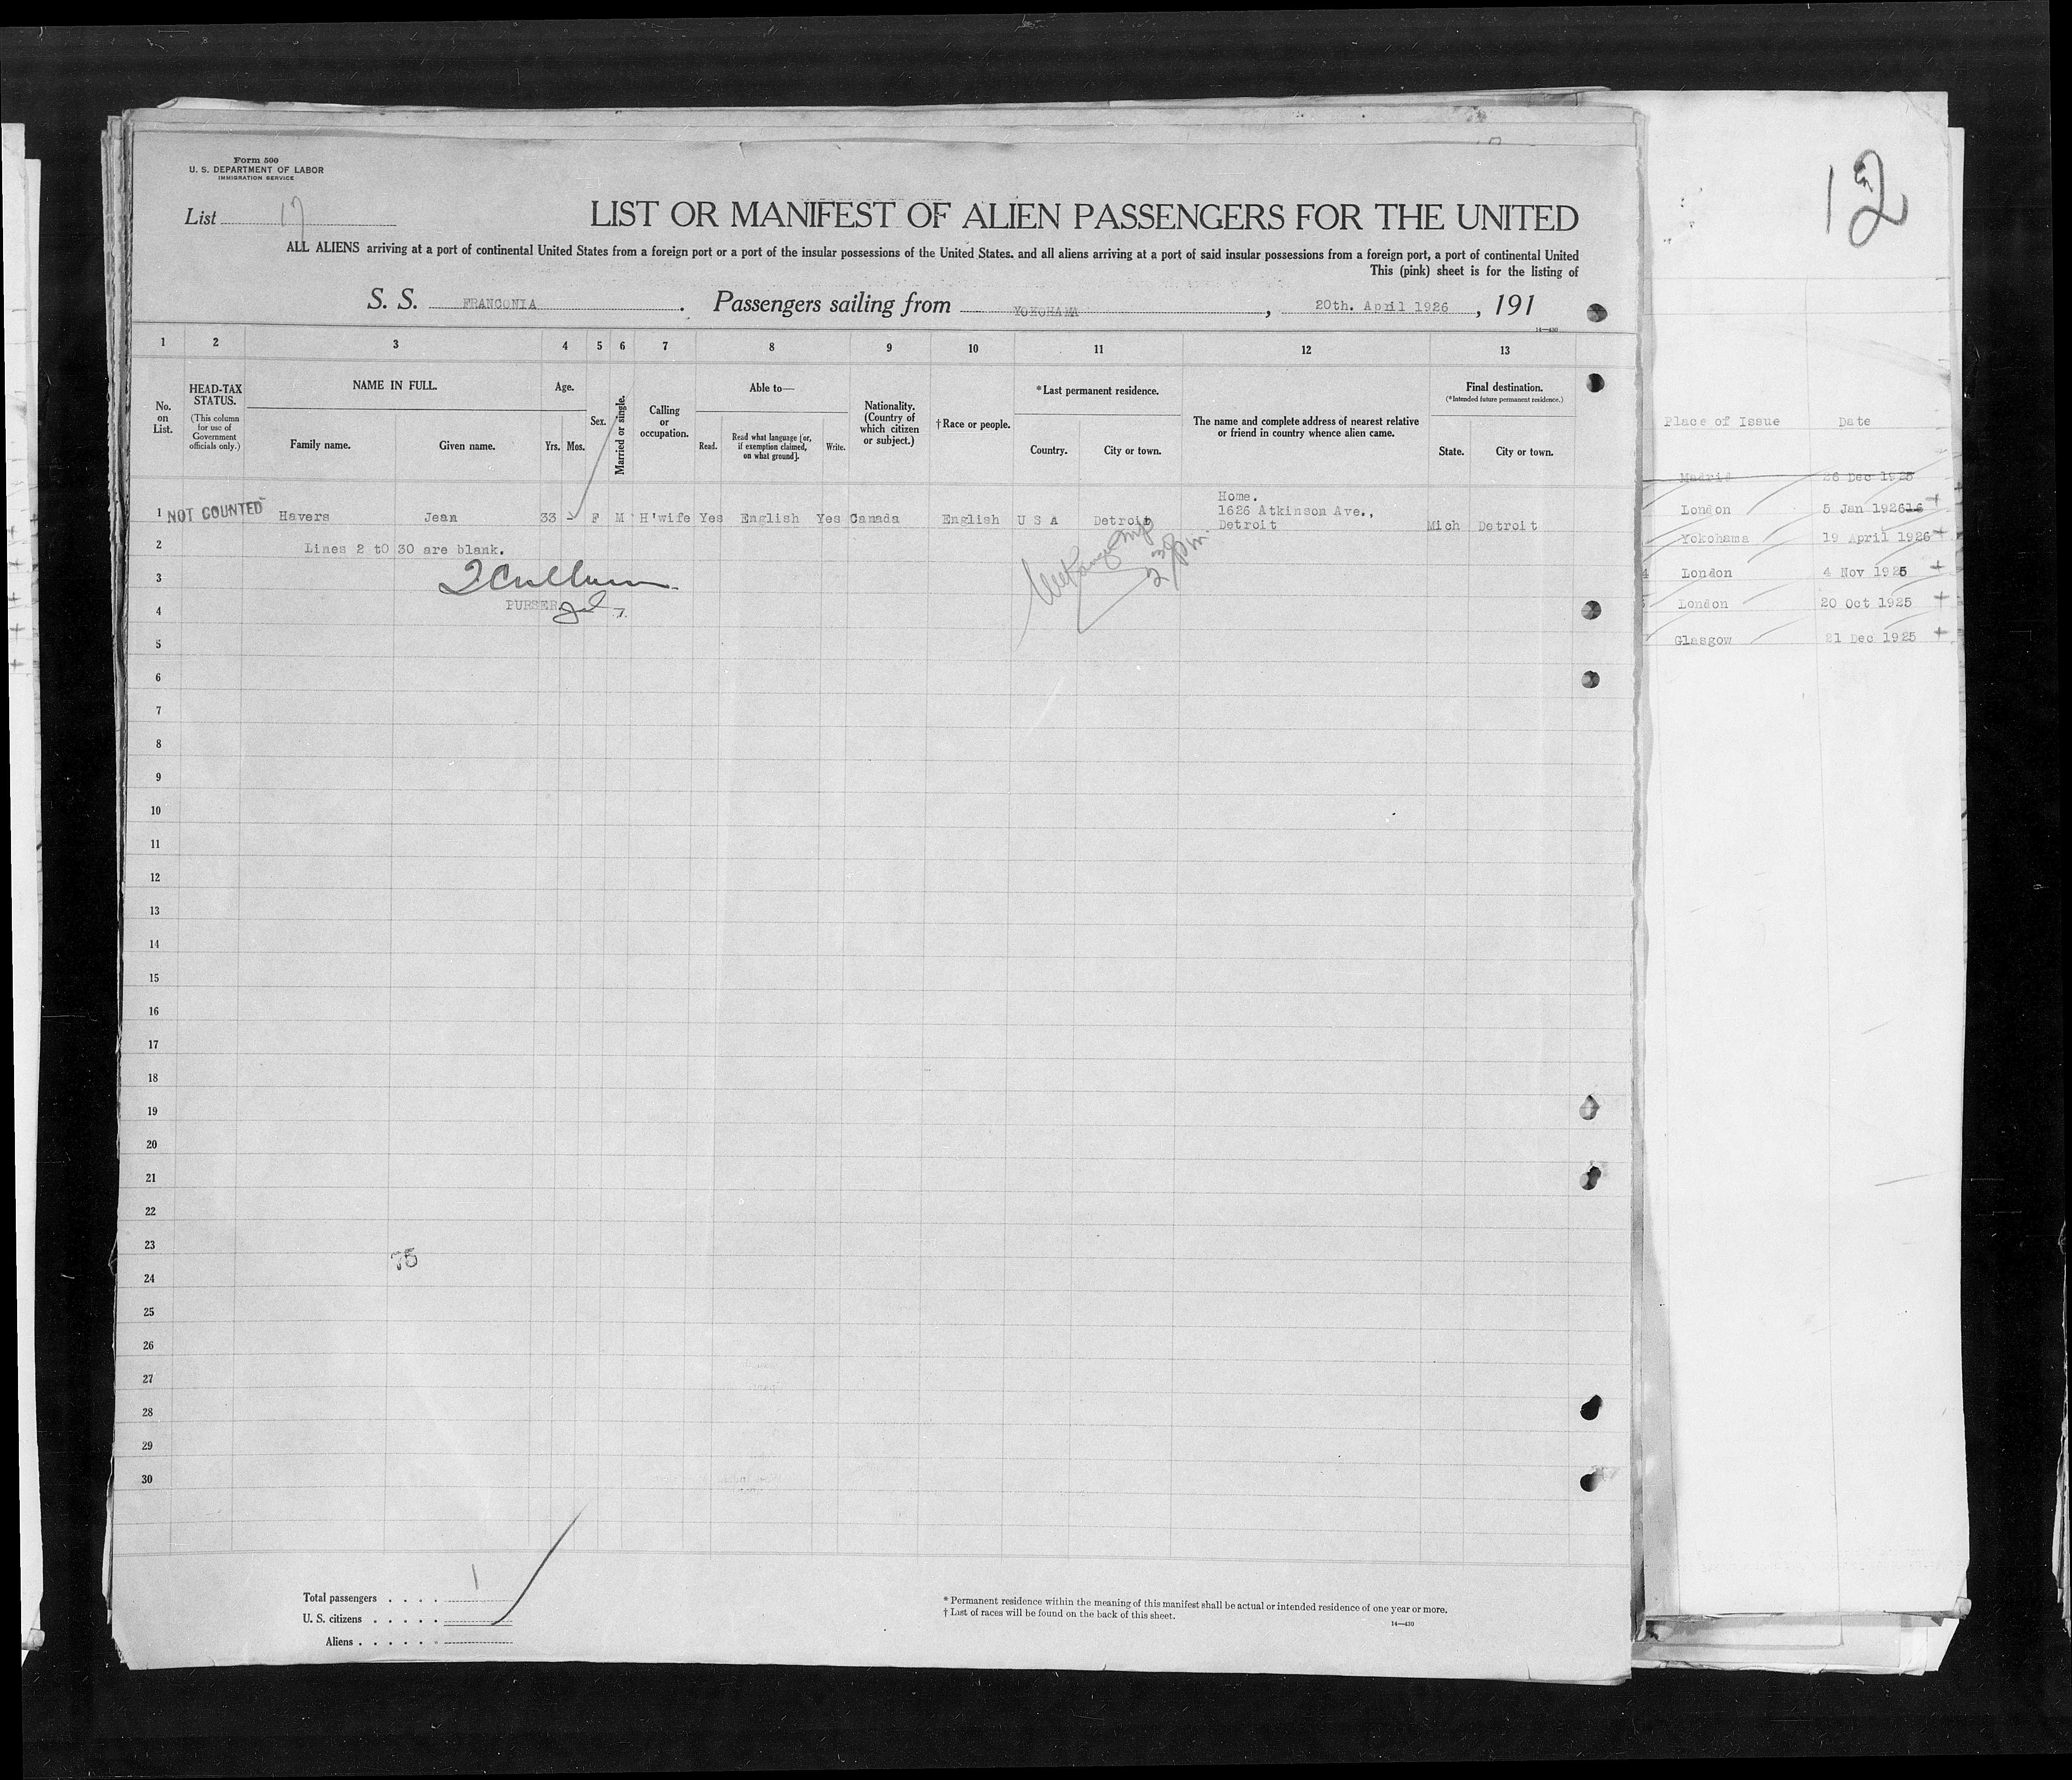 Form 500
U. S. DEPARTMENT OF LABOR
IMMIGRATION SERVICE
List 17
LIST OR MANIFEST OF ALIEN PASSENGERS FOR THE UNITED
ALL ALIENS arriving at a port of continental United States from a foreign port or a port of the insular possessions of the United States. and all aliens arriving at a port of said insular possessions from a foreign port, a port of continental United
This (pink) sheet is for the listing of
S. S. FRANCONIA. Passengers sailing from YOKOHAMA, 20th. April 1926, 191
14—430
1 2 3 4 5 6 7 8 9 10 11 12 13
No. on List.
HEAD-TAX STATUS.
(This column for use of Government officials only.)
NAME IN FULL.
Family name. Given name.
Age.
Yrs. Mos.
Sex.
Married or single.
Calling or occupation.
Able to—
Read. Read what language [or, if exemption claimed, on what ground]. Write.
Nationality. (Country of which citizen or subject.)
†Race or people.
*Last permanent residence.
Country. City or town.
The name and complete address of nearest relative or friend in country whence alien came.
Final destination.
(*Intended future permanent residence.)
State. City or town.
Home.
1626 Atkinson Ave.,
1 NOT COUNTED Havers Jean 33 - F M H'wife Yes English Yes Canada English U S A Detroit Detroit Mich Detroit
2 Lines 2 tO 30 are blank.
3
PURSER.
4
5
6
7
8
9
10
11
12
13
14
15
16
17
18
19
20
21
22
23
75
24
25
26
27
28
29
30
Total passengers . . . . 1
U. S. citizens . . . . .
Aliens . . . . . .
* Permanent residence within the meaning of this manifest shall be actual or intended residence of one year or more.
† List of races will be found on the back of this sheet.
14—430
12
Place of Issue Date
Madrid 28 Dec 1925
London 5 Jan 192616
Yokohama 19 April 1926
London 4 Nov 1925
London 20 Oct 1925
Glasgow 21 Dec 1925